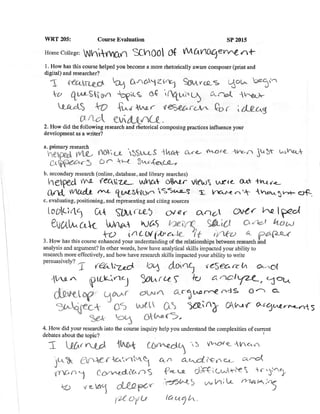 WRT 205: Course Evaluation SP 2015
Home College: Whitman School of Management
1. How has this course helped you become a more rhetorically aware composer (print and
digital) and researcher?
I realized by analyzing sources you begin
to question topics of inquiry and that
leads to further research for ideas
and evidence.
2. How did the following research and rhetorical composing practices influence your
development as a writer?
a. primary research
helped me notice issues that are more than just what
appears on the surface.
b. secondary research (online, database, and library searches)
helped me realize what other views were out there
and made me question issues I haven't thought of.
c. evaluating, positioning, and representing and citing sources
looking at sources over and over helped
evaluate what was being said and how
to incorporate it into a paper
3. How has this course enhanced your understanding of the relationships between research and
analysis and argument? In other words, how have analytical skills impacted your ability to
research more effectively, and how have research skills impacted your ability to write
persuasively?
I realized by doing research and
then picking sources to analyze, you
develop your own arguements on a
subject as well as seeing other arguements
set by others.
4. How did your research into the course inquiry help you understand the complexities of current
debates about the topic?
I learned that comedy is more than
just entertaining an audience and
many comedians face difficulties trying
to relay deeper issues while making
people laugh.